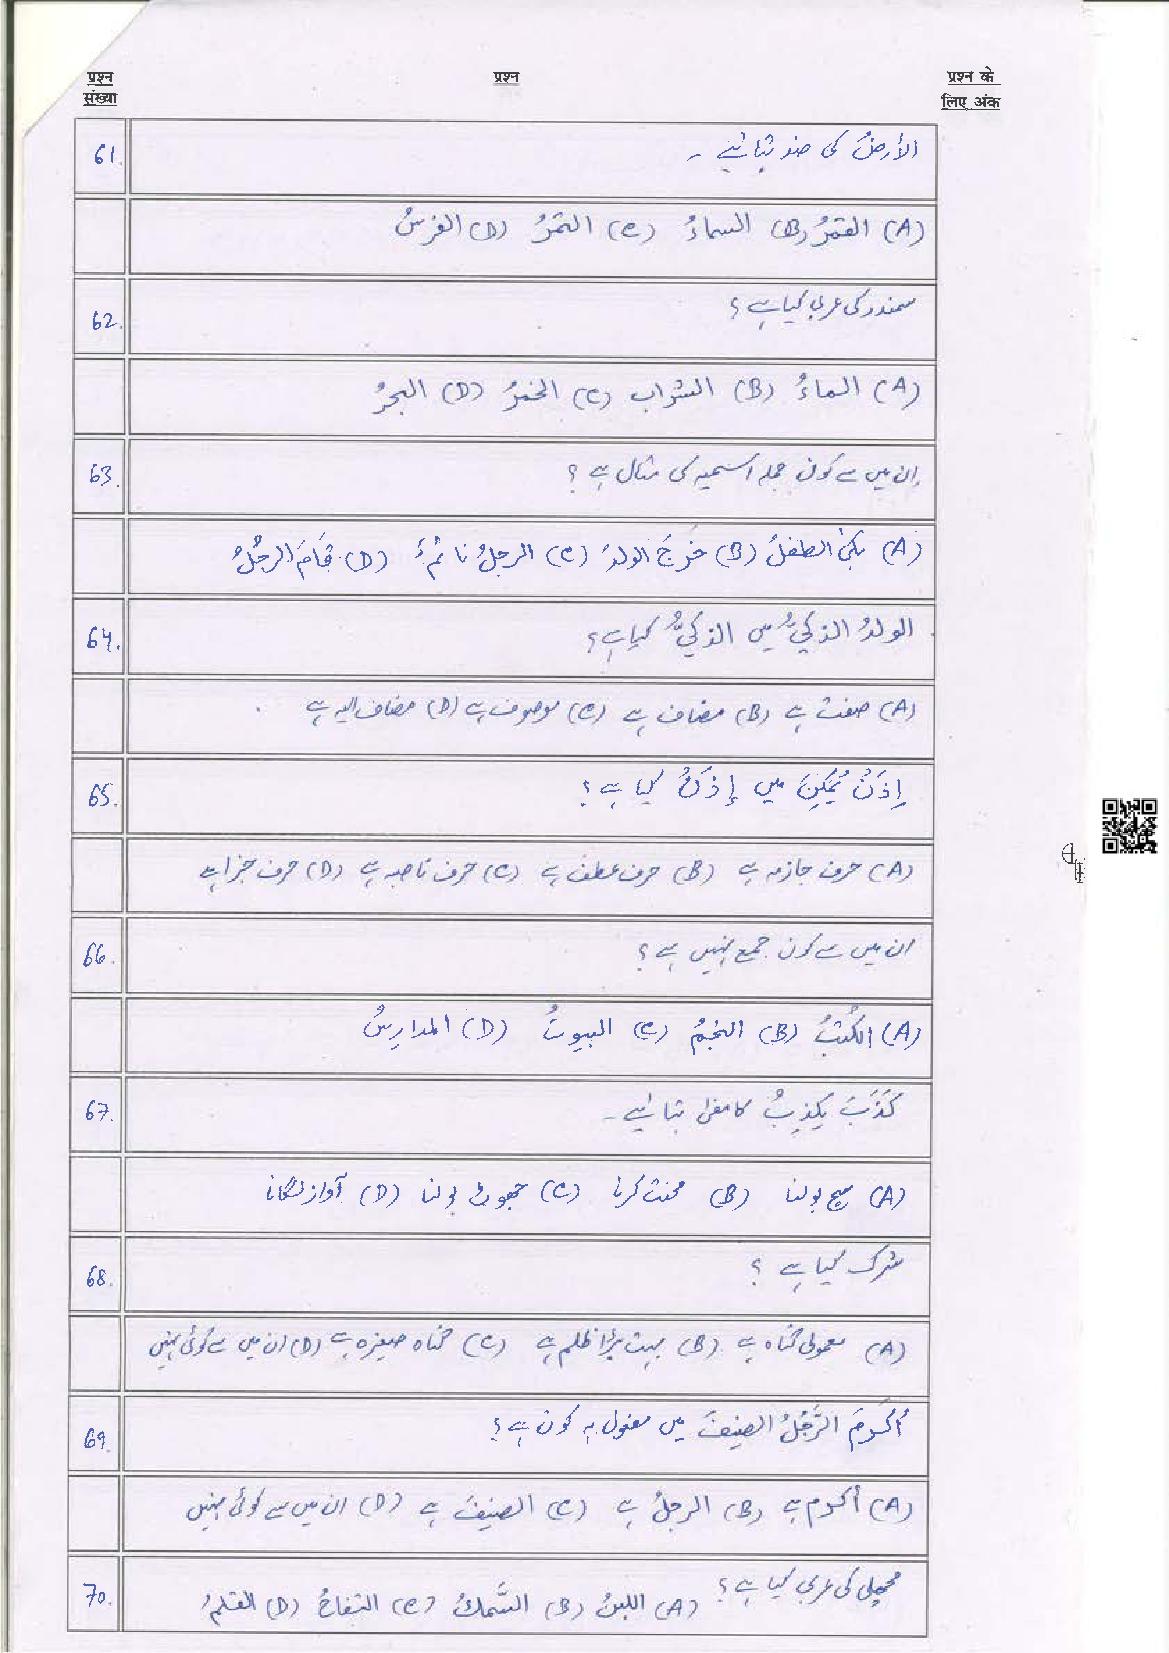 प्रश्न संख्या	प्रश्न	प्रश्न के लिए अंक
61. الأرضُ کی ضد بتائیے۔
(A) القمرُ (B) السماءُ (C) التمرُ (D) الفرسُ
62. سمندر کی عربی کیا ہے؟
(A) الماءُ (B) الشراب (C) الخمرُ (D) البحرُ
63. اِن میں سے کون جملہ اسمیہ کی مثال ہے؟
(A) بکیٰ الطفلُ (B) خَرَجَ الولدُ (C) الرجلُ نائمٌ (D) قَامَ الرجُلُ
64. الولدُ الذکیُّ میں الذکیُّ کیا ہے؟
(A) صفت ہے (B) مضاف ہے (C) موصوف ہے (D) مضاف الیہ ہے
65. اِذَنْ یُمْکِنَ میں إِذَنْ کیا ہے؟
(A) حرف جازمہ ہے (B) حرف عطف ہے (C) حرف ناصبہ ہے (D) حرف جزا ہے
66. ان میں سے کون جمع نہیں ہے؟
(A) الکُتُبُ (B) النجمُ (C) البیوتُ (D) المدارِسُ
67. کَذَبَ یکذِبُ کا معنیٰ بتائیے۔
(A) سچ بولنا (B) محنت کرنا (C) جھوٹ بولنا (D) آواز لگانا
68. شرک کیا ہے؟
(A) معمولی گناہ ہے (B) بہت بڑا ظلم ہے (C) گناہ صغیرہ ہے (D) ان میں سے کوئی نہیں
69. أکرَمَ الرَّجُلُ الضیفَ میں مفعول بہ کون ہے؟
(A) أکرم ہے (B) الرجلُ ہے (C) الضیفَ ہے (D) ان میں سے کوئی نہیں
70. مچھلی کی عربی کیا ہے؟ (A) اللبنُ (B) السَّمکُ (C) التفاحُ (D) القلمُ